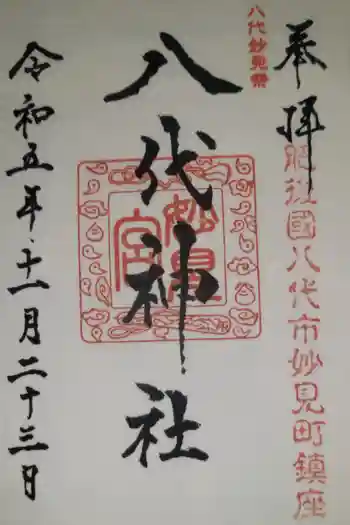 奉拝
八代妙見祭
肥後國八代市妙見町鎮座
八代神社
妙見宮
令和五年十一月二十三日